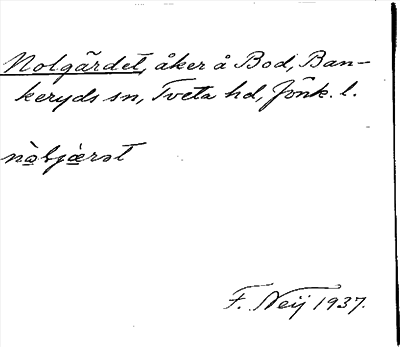 Nolgärdet, åker å Bod, Ban-
keryds sn, Tveta hd, Jönk. l.
F. Neij 1937.